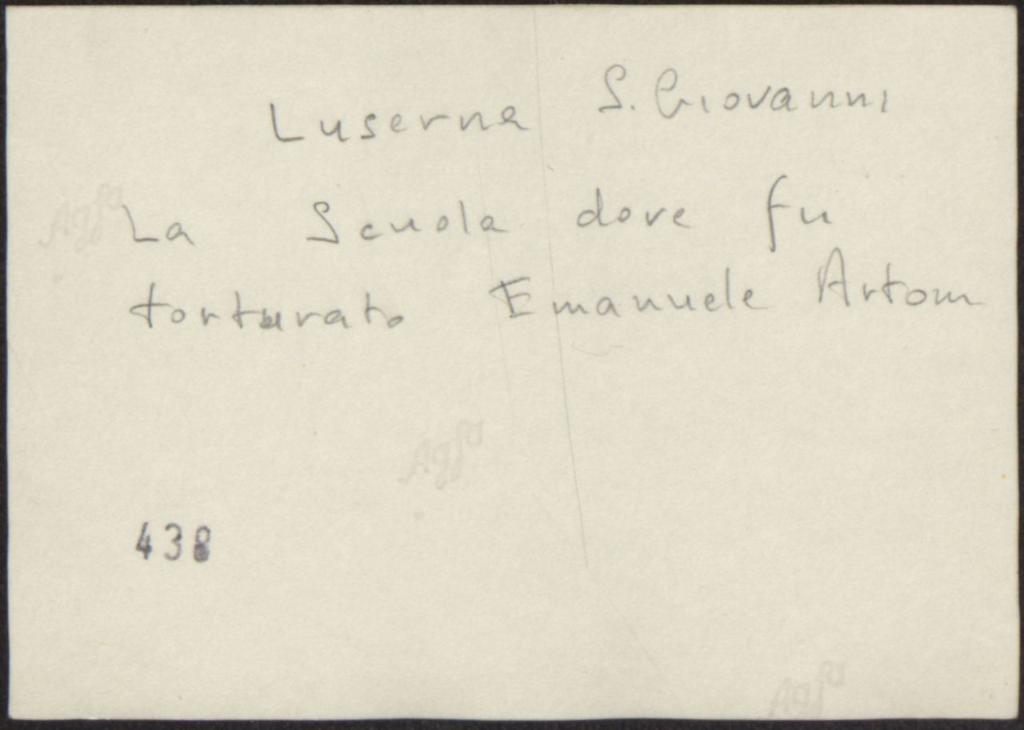 Luserna S. Giovanni
La Scuola dove fu
torturato Emanuele Artom
Agfa
Agfa
438
Agfa